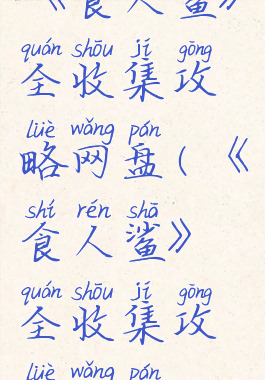 《食人鲨》
quán shōu jí gōng
全收集攻
lüè wǎng pán
略网盘(《
shí rén shā
食人鲨》
quán shōu jí gōng
全收集攻
lüè wǎng pán